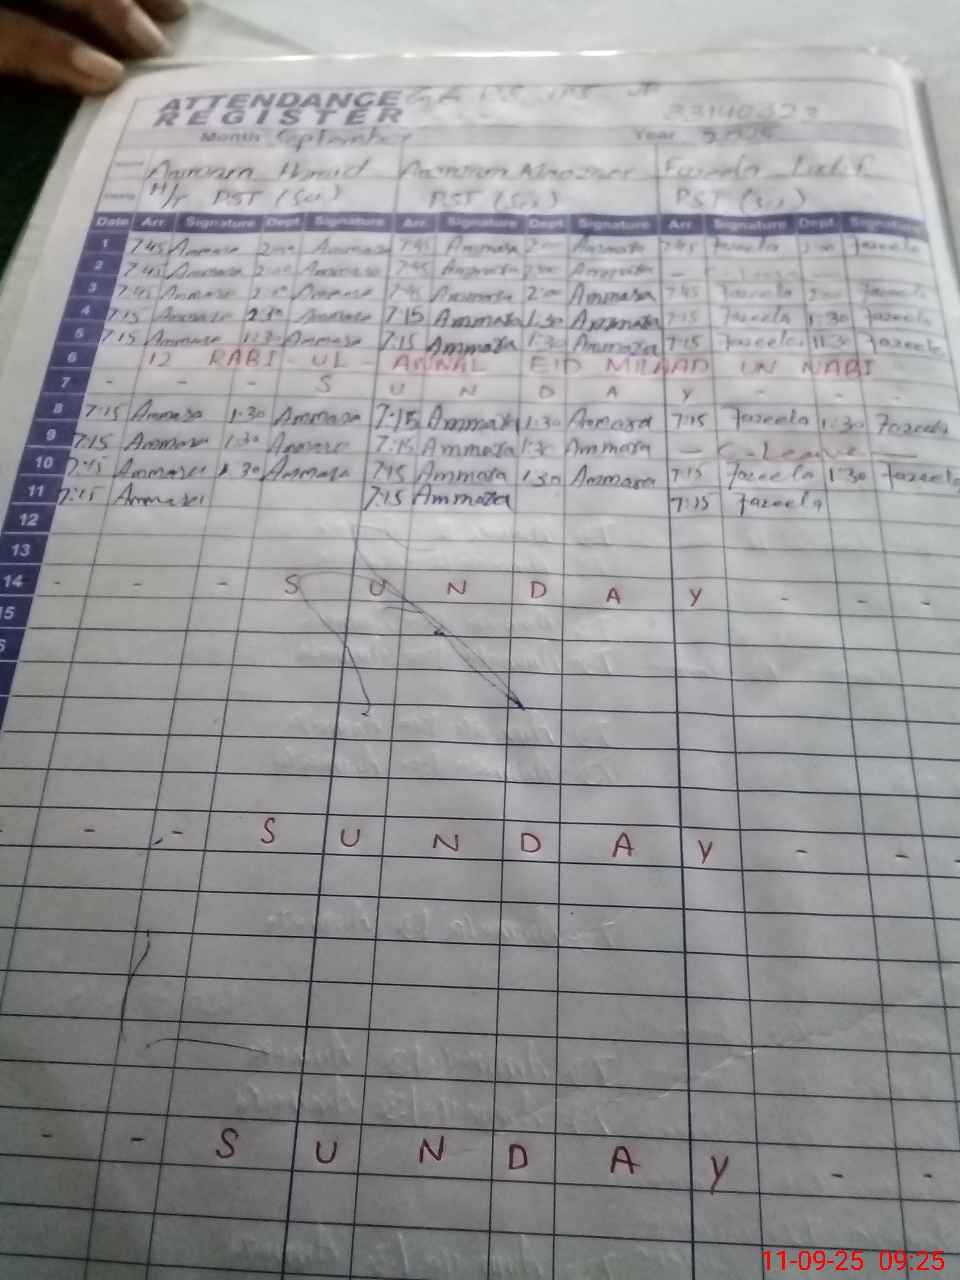 ATTENDANCE
REGISTER
33140323
Month September Year 2025
Ammara Hamid Ammara Fazeela
H/T PST (Sci) PST (Sci) PST (Sci)
Date Arr. Signature Dept. Signature Arr. Signature Dept. Signature Arr. Signature Dept. Signature
1 7:45 Ammara 2:00 Ammara 7:45 Ammara 2:00 Ammara 7:45 Fazeela 2:00 Fazeela
2 7:45 Ammara 2:00 Ammara 7:45 Ammara 2:00 Ammara - C-Leave
3 7:45 Ammara 2:00 Ammara 7:45 Ammara 2:00 Ammara 7:45 Fazeela 2:00 Fazeela
4 7:15 Ammara Ammara 7:15 Ammara 1:30 Ammara 7:15 Fazeela 1:30 Fazeela
5 7:15 Ammara 1:30 Ammara 7:15 Ammara 1:30 Ammara 7:15 Fazeela 1:30 Fazeela
6 12 RABI - UL - AWWAL EID MILAAD UN NABI
7 - - - S U N D A Y - - -
8 7:15 Ammara 1:30 Ammara 7:15 Ammara 1:30 Ammara 7:15 Fazeela 1:30 Fazeela
9 7:15 Ammara 1:30 Ammara 7:15 Ammara 1:30 Ammara - C-Leave -
10 7:15 Ammara 1:30 Ammara 7:15 Ammara 1:30 Ammara 7:15 Fazeela 1:30 Fazeela
11 7:15 Ammara 7:15 Ammara 7:15 Fazeela
12
13
14 - - - S U N D A Y - - -
- - - S U N D A Y - - -
- - S U N D A Y - -
11-09-25 09:25